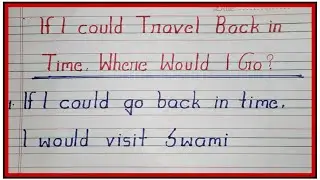 If I could Travel Back in
Time, Where Would I Go?
1. If I could go back in time,
I would visit Swami